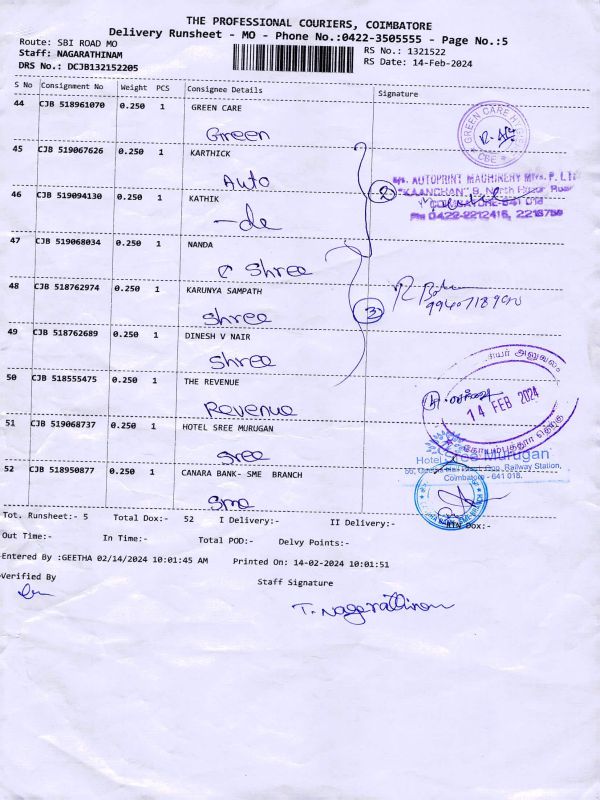 THE PROFESSIONAL COURIERS, COIMBATORE
Delivery Runsheet - MO - Phone No.:0422-3505555 - Page No.:5
Route: SBI ROAD MO
RS No.: 1321522
Staff: NAGARATHINAM
RS Date: 14-Feb-2024
DRS No.: DCJB132152205
S No Consignment No Weight PCS Consignee Details Signature
44 CJB 518961070 0.250 1 GREEN CARE
Green
GREEN CARE
CBE
45 CJB 519067626 0.250 1 KARTHICK
Auto
M/s. AUTOPRINT MACHINERY Mfrs. P. LTD
2 "KAANCHAN" 9, North Huzur Road
COIMBATORE-641 018
Ph: 0422-2212416, 2213750
46 CJB 519094130 0.250 1 KATHIK
-do
47 CJB 519068034 0.250 1 NANDA
C Shree
48 CJB 518762974 0.250 1 KARUNYA SAMPATH
Shree
3
49 CJB 518762689 0.250 1 DINESH V NAIR
Shree
50 CJB 518555475 0.250 1 THE REVENUE
Revenue
14 FEB 2024
கோயம்புத்தூர் தெற்கு
51 CJB 519068737 0.250 1 HOTEL SREE MURUGAN
Sree
Hotel Sree Murugan
Opp. Railway Station,
Coimbatore - 641 018.
52 CJB 518950877 0.250 1 CANARA BANK- SME BRANCH
Sme
Tot. Runsheet:- 5 Total Dox:- 52 I Delivery:- II Delivery:- Dox:-
Out Time:- In Time:- Total POD:- Delvy Points:-
Entered By :GEETHA 02/14/2024 10:01:45 AM Printed On: 14-02-2024 10:01:51
Verified By
Staff Signature
T. Nagarathinam